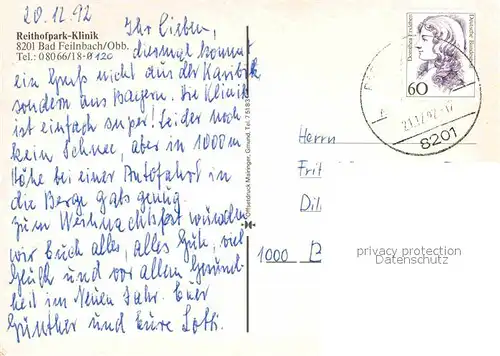 20.12.92
Reithofpark-Klinik
8201 Bad Feilnbach/Obb.
Tel.: 08066/18-0120
Ihr Lieben,
diesmal kommt
ein Gruß nicht aus der Karibik
sondern aus Bayern. Die Klinik
ist einfach super! Leider noch
kein Schnee, aber in 1000 m
Höhe bei einer Autofahrt in
die Berge gabs genug.
Zum Weihnachtsfest wünschen
wir Euch alles, alles Gute, viel
Glück und vor allem Gesund-
heit im Neuen Jahr. Euer
Günther und Eure Lotti.
Offsetdruck Mairinger, Gmund, Tel. 7 51 83
Dorothea Erxleben
Deutsche Bundespost
60
21.12.92-17
8201
Herrn
Frit
Di
1000
privacy protection
Datenschutz